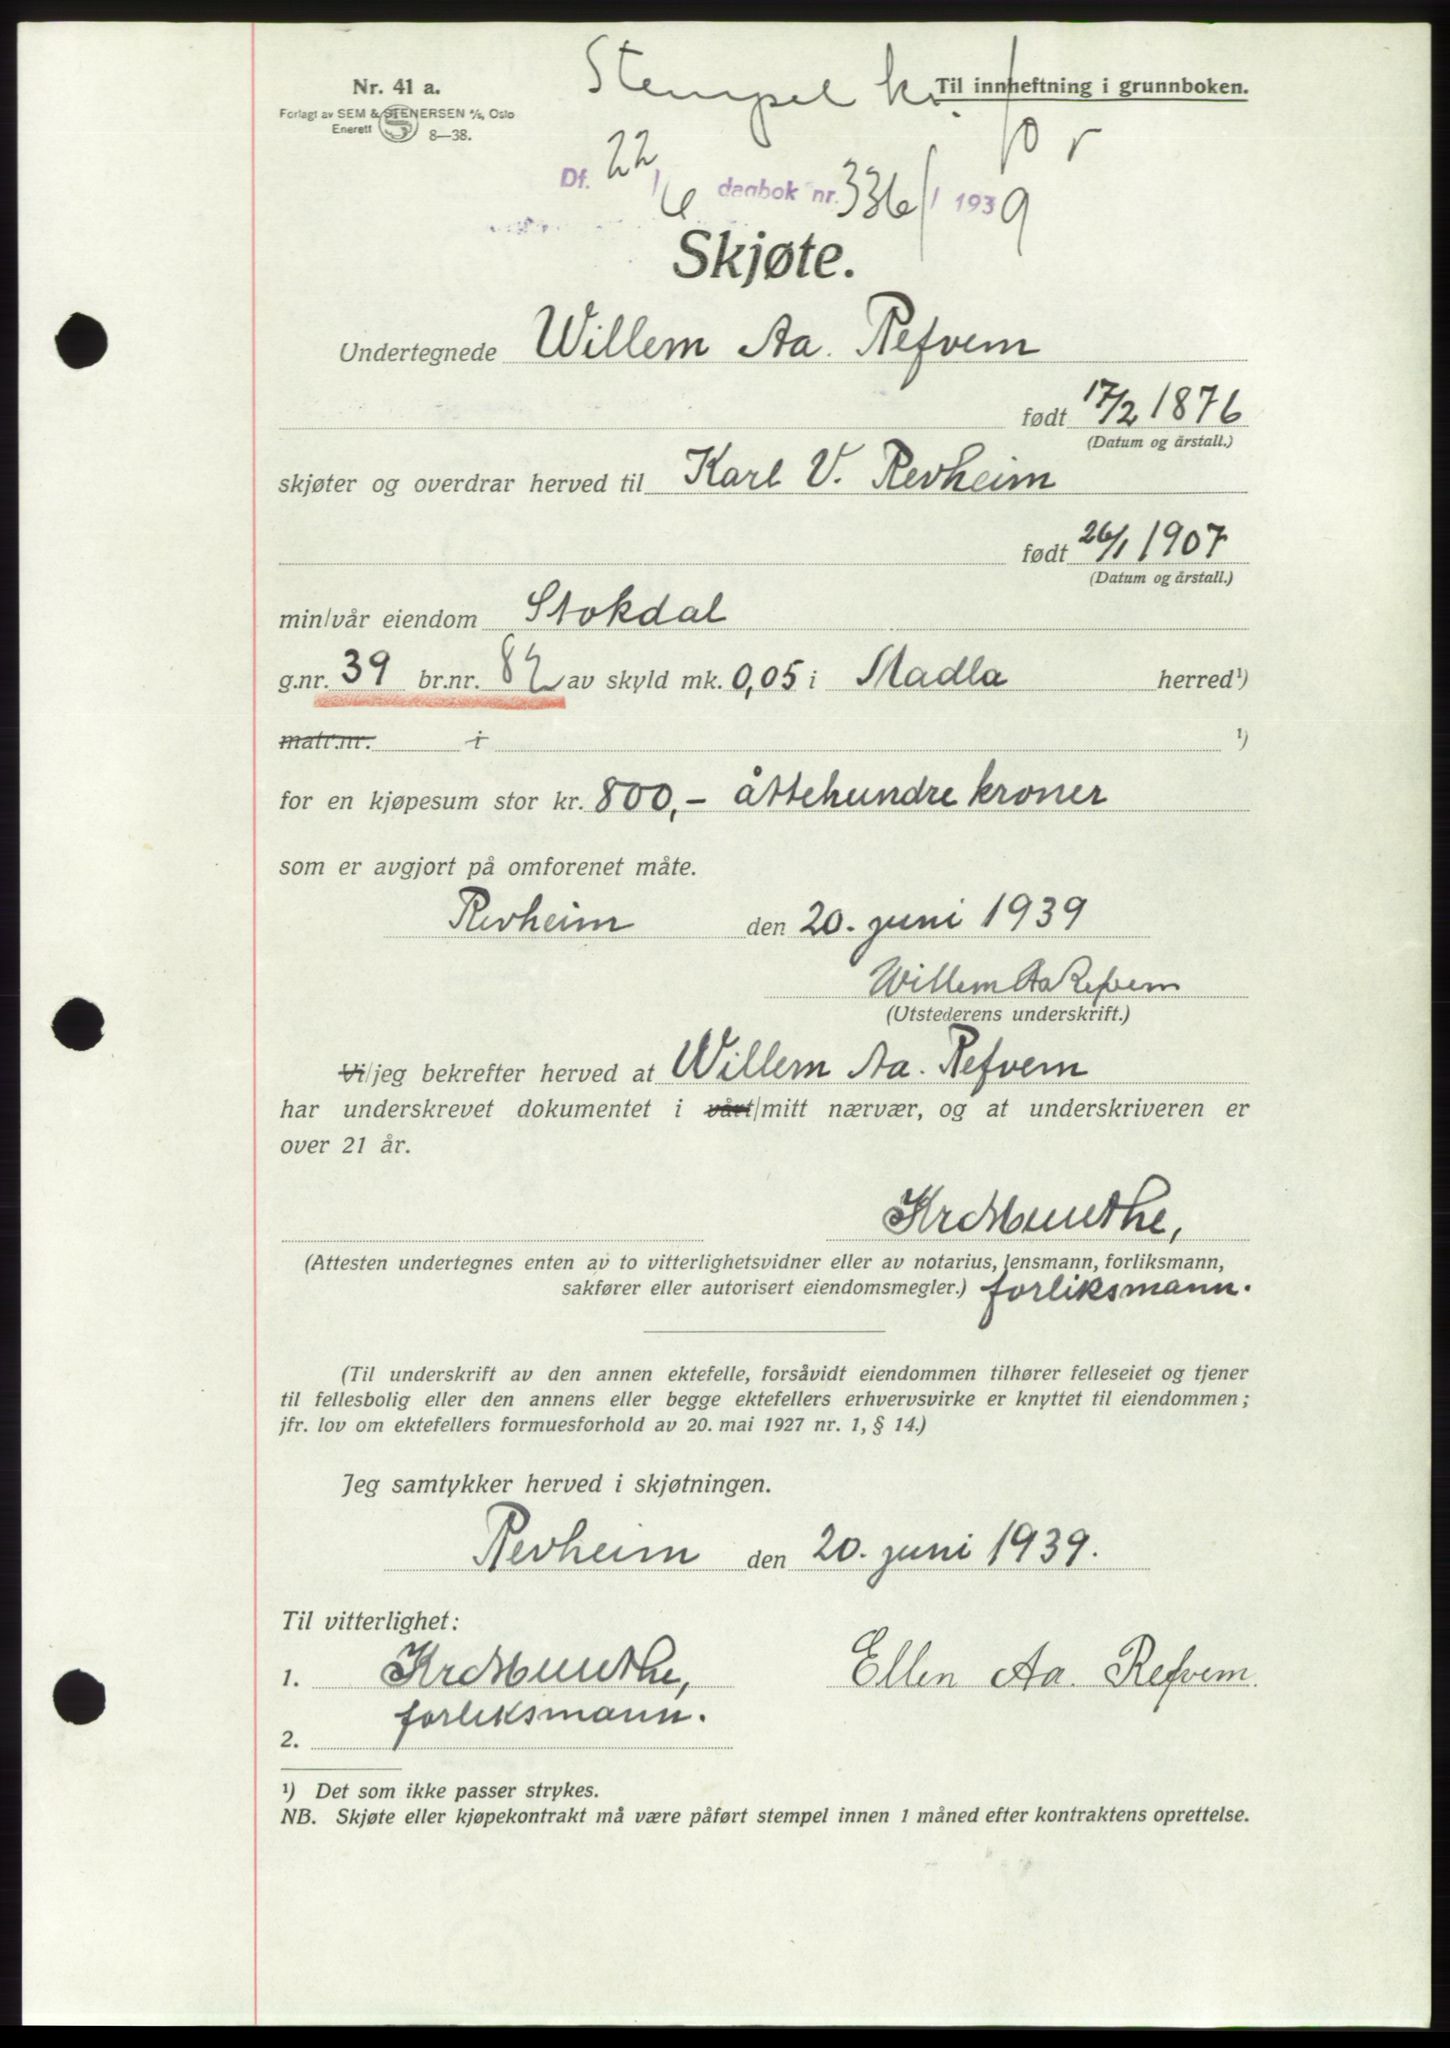 Nr. 41 a.
Forlagt av SEM & STENERSEN A/S, Oslo
Enerett 8—38.
Stempel kr.
Til innheftning i grunnboken.
Df. 22/6 dagbok nr. 3361 1939
Skjøte.
Undertegnede Willem Aa. Refvem
født 17/2 1876
(Datum og årstall.)
skjøter og overdrar herved til Karl V. Revheim
født 26/1 1907
(Datum og årstall.)
min/vår eiendom Stokdal
g.nr. 39 br.nr. 82 av skyld mk. 0,05 i Madla herred¹)
matr.nr. i ¹)
for en kjøpesum stor kr. 800,- åttehundre kroner
som er avgjort på omforenet måte.
Revheim den 20. juni 1939
Willem Aa Refvem
(Utstederens underskrift.)
Vi/jeg bekrefter herved at Willem Aa. Refvem
har underskrevet dokumentet i vårt/mitt nærvær, og at underskriveren er
over 21 år.
Kr Munthe,
(Attesten undertegnes enten av to vitterlighetsvidner eller av notarius, lensmann, forliksmann,
sakfører eller autorisert eiendomsmegler.) forliksmann.
(Til underskrift av den annen ektefelle, forsåvidt eiendommen tilhører felleseiet og tjener
til fellesbolig eller den annens eller begge ektefellers erhvervsvirke er knyttet til eiendommen;
jfr. lov om ektefellers formuesforhold av 20. mai 1927 nr. 1, § 14.)
Jeg samtykker herved i skjøtningen.
Revheim den 20. juni 1939.
Til vitterlighet:
1. Kr Munthe, Ellen Aa. Refvem.
forliksmann.
2.
¹) Det som ikke passer strykes.
NB. Skjøte eller kjøpekontrakt må være påført stempel innen 1 måned efter kontraktens oprettelse.